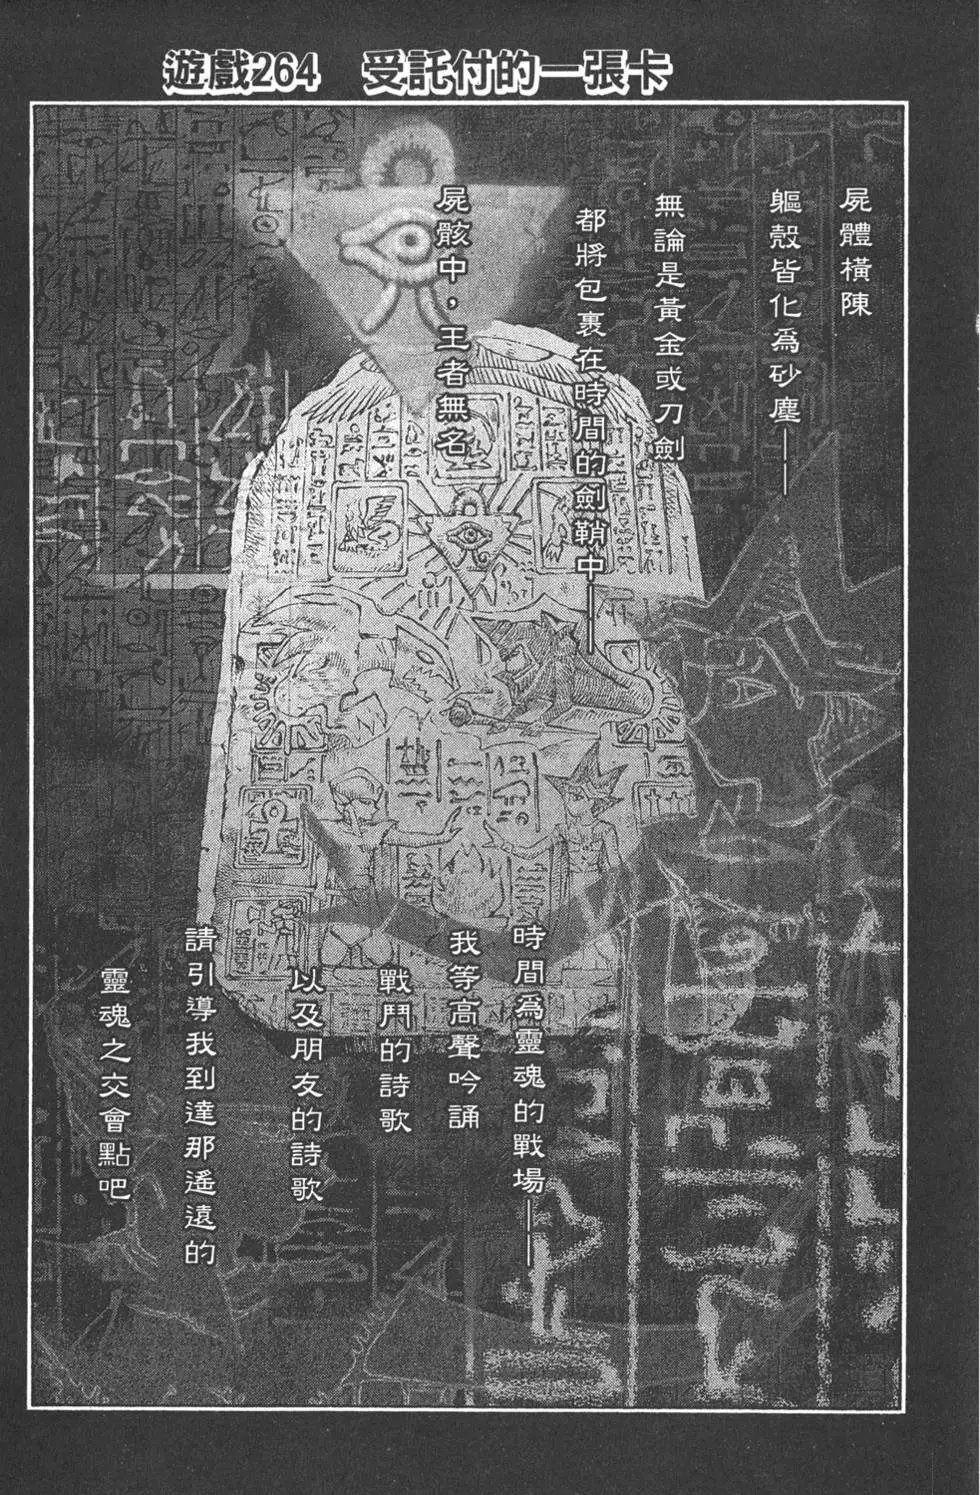 遊戲264 受託付的一張卡
屍體橫陳
軀殼皆化為砂塵——
無論是黃金或刀劍
都將包裹在時間的劍鞘中——
屍骸中，王者無名
時間為靈魂的戰場——
我等高聲吟誦
戰鬥的詩歌
以及朋友的詩歌
請引導我到達那遙遠的
靈魂之交會點吧